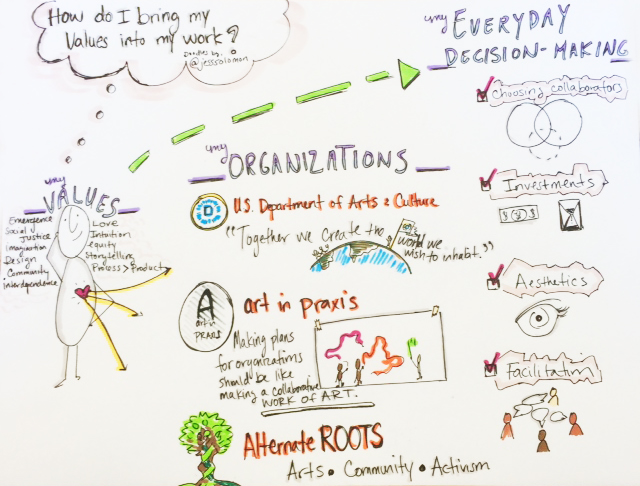 How do I bring my
Values into my work?
Doodles by
@jesssolomon
my
VALUES
Emergence
Social
Justice
Imagination
Design
Community
Interdependence
Love
Intuition
equity
Storytelling
Process > Product
my
ORGANIZATIONS
D
U.S. Department of Arts & Culture
"Together we create the
world we
wish to inhabit."
A
art in
PRAXIS
art in praxis
Making plans
for organizations
should be like
making a collaborative
WORK OF ART.
Alternate ROOTS
Arts • Community • Activism
my EVERYDAY
DECISION-MAKING
Choosing collaborators
Investments
Aesthetics
Facilitation